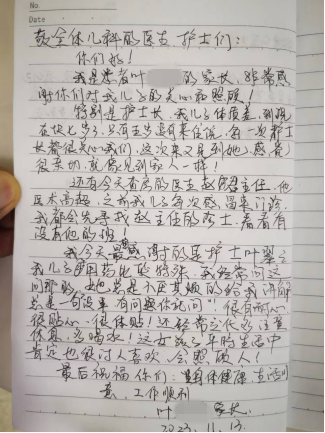 No
Date
致全体儿科的医生护士们:
你们好!
我是患者叶 的家长,非常感
谢你们对我儿子的关心和照顾!
特别是护士长,我儿子体质差,到现
在快七岁了,只有五岁没有来住院,每一次护士
长都很关心我们,这次来又见到她,感觉
很亲切,就像见到家人一样!
还有今天查房的医生赵 主任,他
医术高超,之前我儿子每次感冒来门诊,
我都会先寻找赵主任的医士,看看有
没有他的班!
我今天最感谢的是护士叶翠
我儿子使用药比较特殊,我经常问这
问那的,她总是不厌其烦的给我讲解
总是一句没事,有问题你说问",很有耐心,
很贴心,很体贴!还经常交代多注意
休息,多喝水!这女孩子平时生活中
肯定也很讨人喜欢,会照顾人!
最后祝福你们:身体健康,生活
意,工作顺利
叶 家长
2023.11.13